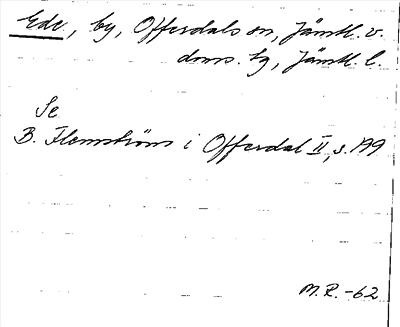 Ede, by, Offerdals sn, Jämtl. v.
doms. tg, Jämtl. l.
Se
B. Flemström i Offerdal II, s. 199
M.R. -62